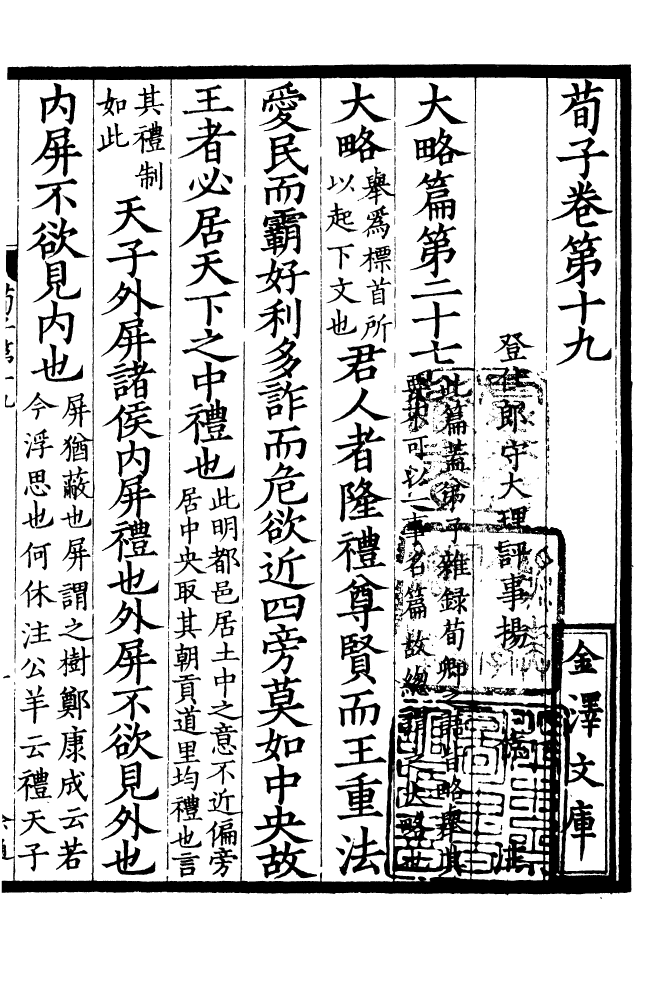 荀子卷第十九
登仕郎守大理評事楊 倞 注
金澤文庫
大略篇第二十七 此篇蓋弟子雜録荀卿之語皆略舉其
要不可以一事名篇故總謂之大略也
大略 舉爲標首所
以起下文也 君人者隆禮尊賢而王重法
愛民而霸好利多詐而危欲近四旁莫如中央故
王者必居天下之中禮也 此明都邑居土中之意不近偏旁
居中央取其朝貢道里均禮也言
其禮制
如此 天子外屏諸侯内屏禮也外屏不欲見外也
内屏不欲見内也 屏猶蔽也屏謂之樹鄭康成云若
今浮思也何休注公羊云禮天子